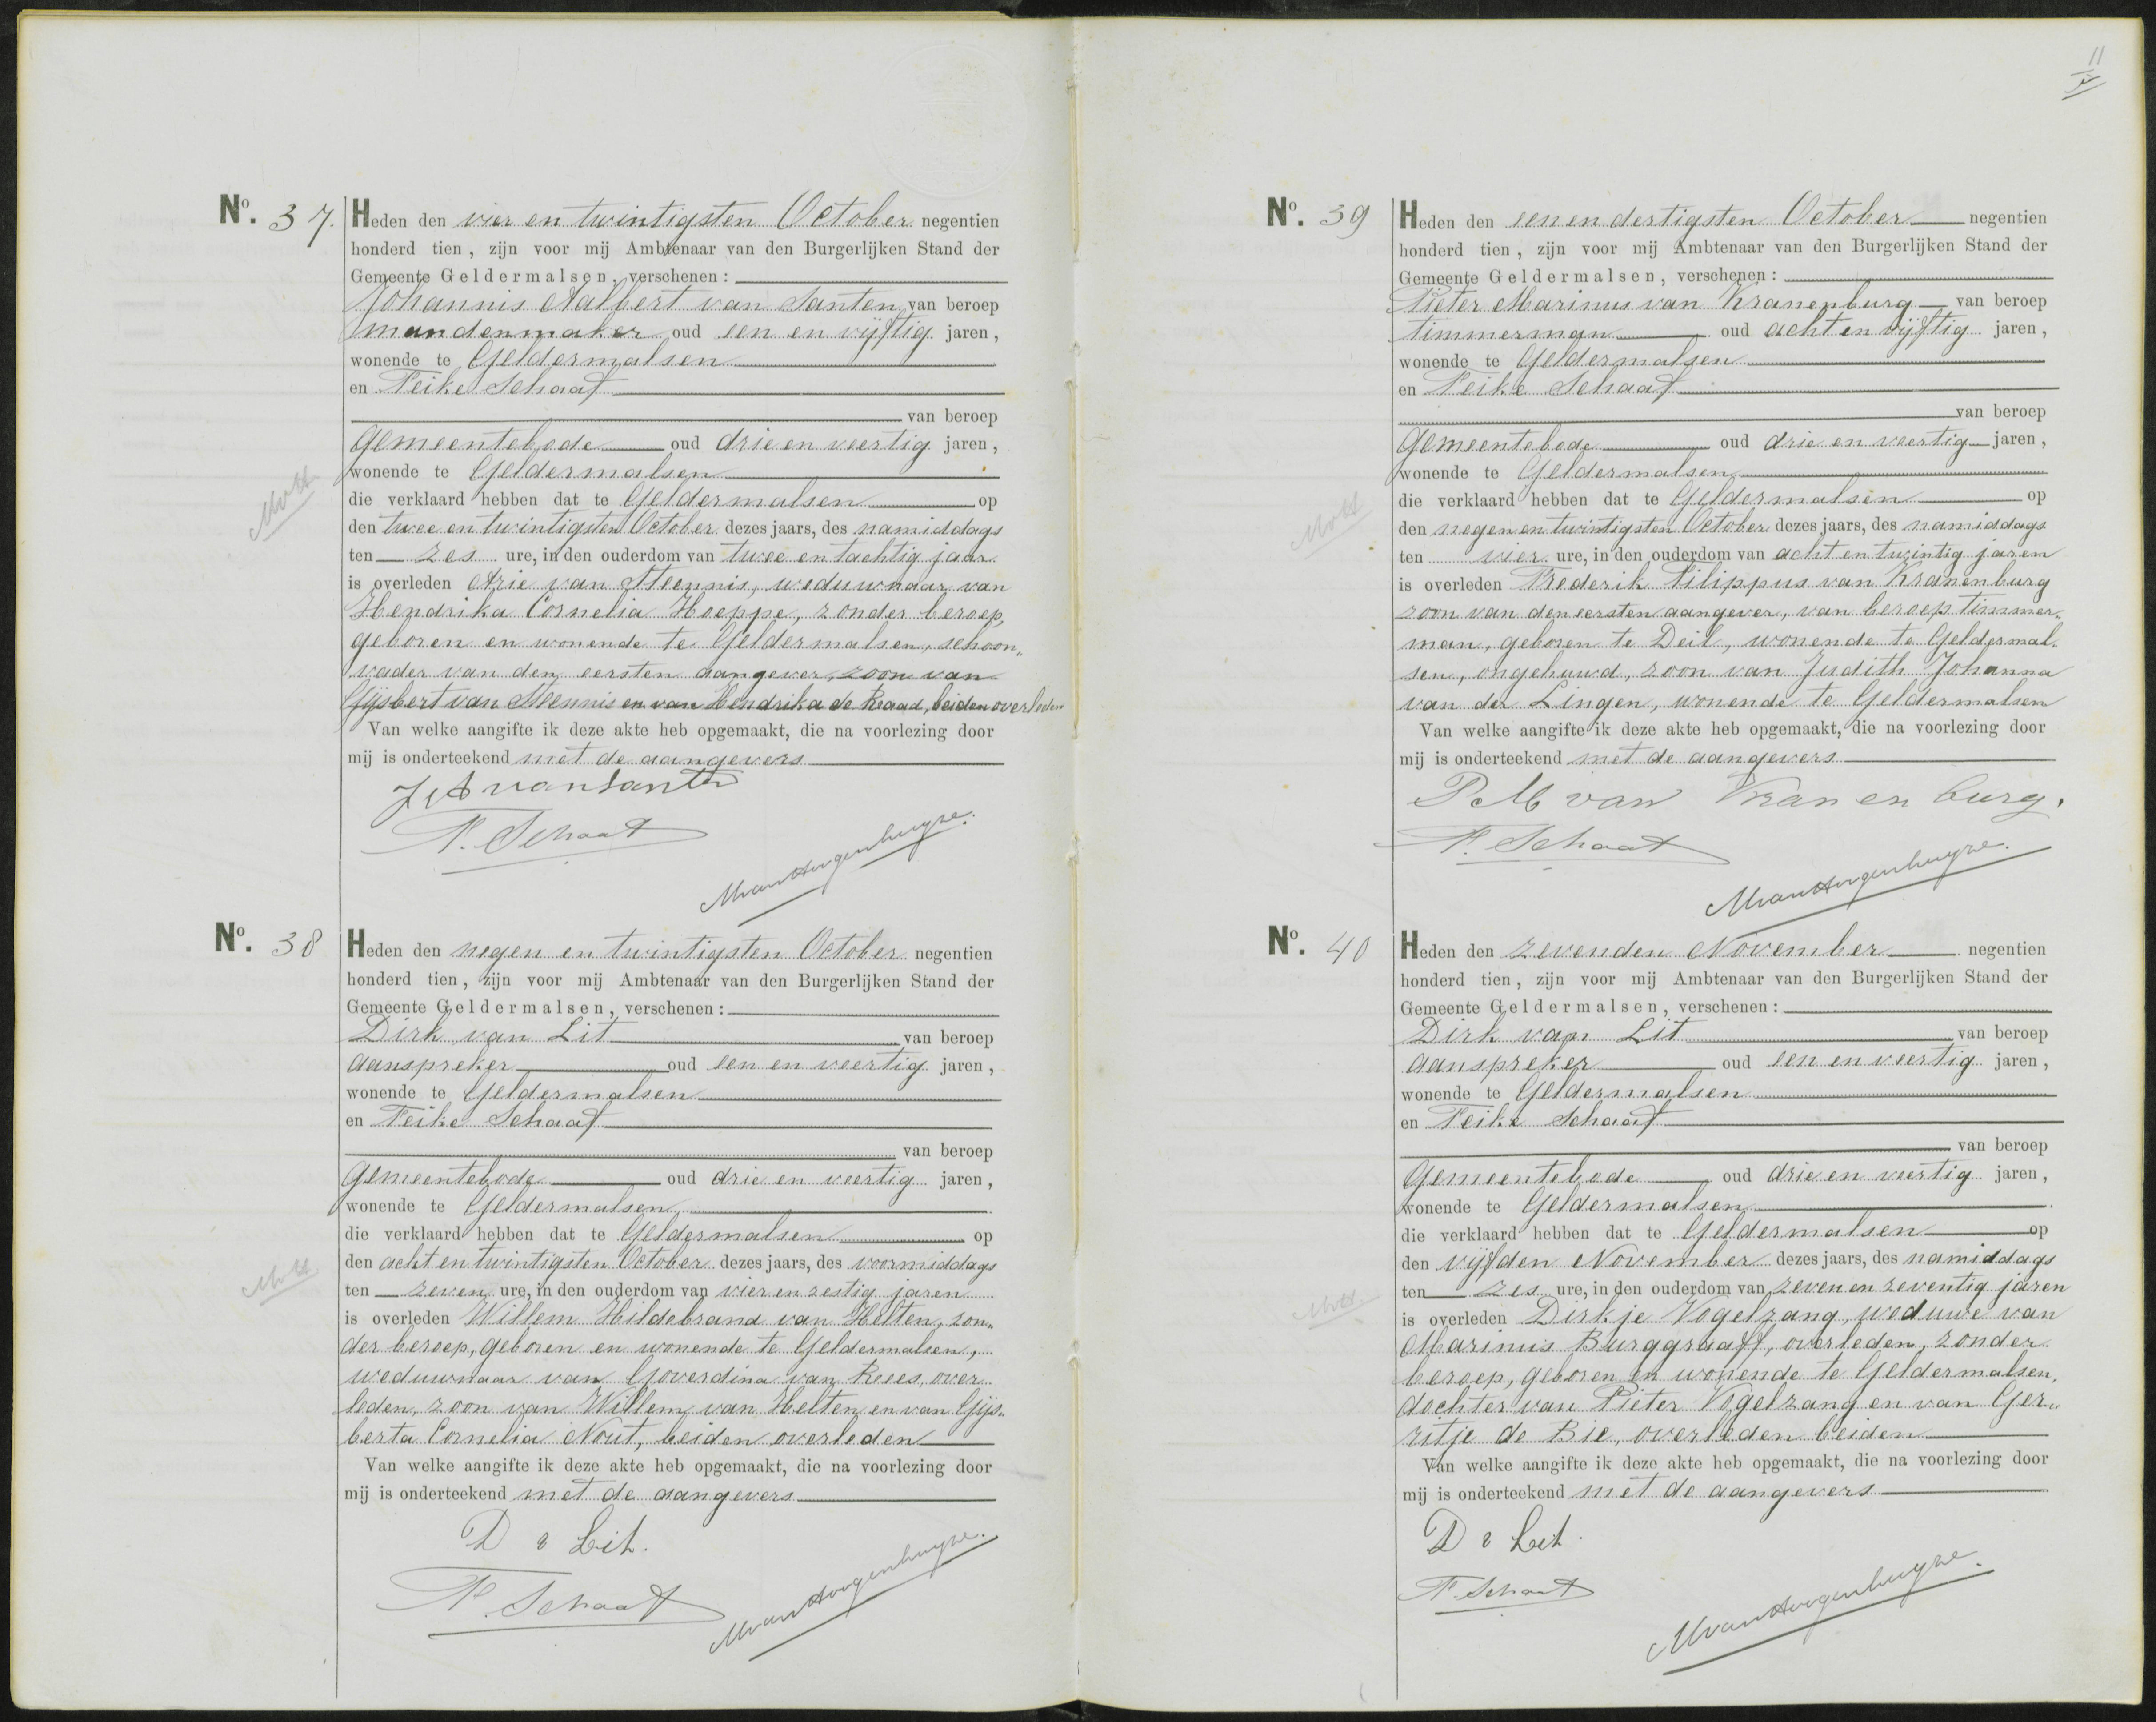 No. 37.
Heden den vier en twintigsten October negentien
honderd tien, zijn voor mij Ambtenaar van den Burgerlijken Stand der
Gemeente Geldermalsen, verschenen:
Johannis Aalbert van Santen van beroep
mandenmaker oud een en vijftig jaren,
wonende te Geldermalsen
en Feike Schaaf
van beroep
gemeentebode oud drie en veertig jaren,
wonende te Geldermalsen
die verklaard hebben dat te Geldermalsen op
den twee en twintigsten October dezes jaars, des namiddags
ten zes ure, in den ouderdom van twee en tachtig jaar
is overleden Arie van Steennis, weduwnaar van
Hendrika Cornelia Hoeppe, zonder beroep,
geboren en wonende te Geldermalsen, schoon„
vader van den eersten aangever, zoon van
Gijsbert van Steennis en van Hendrika de Raad, beiden overleden
Van welke aangifte ik deze akte heb opgemaakt, die na voorlezing door
mij is onderteekend met de aangevers
J A van Santen
F. Schaaf
MvanHoogenhuyze.
No. 38
Heden den negen en twintigsten October negentien
honderd tien, zijn voor mij Ambtenaar van den Burgerlijken Stand der
Gemeente Geldermalsen, verschenen:
Dirk van Lit van beroep
aanspreker oud een en veertig jaren,
wonende te Geldermalsen
en Feike Schaaf
van beroep
gemeentebode oud drie en veertig jaren,
wonende te Geldermalsen
die verklaard hebben dat te Geldermalsen op
den acht en twintigsten October dezes jaars, des voormiddags
ten zeven ure, in den ouderdom van vier en zestig jaren
is overleden Willem Hildebrand van Helten, zon„
der beroep, geboren en wonende te Geldermalsen,
weduwnaar van Goverdina van Rees, over
leden, zoon van Willem van Helten en van Gijs„
berta Cornelia Nout, beiden overleden
Van welke aangifte ik deze akte heb opgemaakt, die na voorlezing door
mij is onderteekend met de aangevers
D v Lit.
F. Schaaf
MvanHoogenhuyze.
11
No. 39
Heden den een en dertigsten October negentien
honderd tien, zijn voor mij Ambtenaar van den Burgerlijken Stand der
Gemeente Geldermalsen, verschenen:
Pieter Marinus van Kranenburg van beroep
timmerman oud acht en vijftig jaren,
wonende te Geldermalsen
en Feike Schaaf
van beroep
gemeentebode oud drie en veertig jaren,
wonende te Geldermalsen
die verklaard hebben dat te Geldermalsen op
den negen en twintigsten October dezes jaars, des namiddags
ten vier ure, in den ouderdom van acht en twintig jaren
is overleden Frederik Filippus van Kranenburg
zoon van den eersten aangever, van beroep timmer„
man, geboren te Deil, wonende te Geldermal„
sen, ongehuwd, zoon van Judith Johanna
van der Lingen, wonende te Geldermalsen
Van welke aangifte ik deze akte heb opgemaakt, die na voorlezing door
mij is onderteekend met de aangevers
P M van Kranenburg.
F. Schaaf
MvanHoogenhuyze.
No. 40
Heden den zevenden November negentien
honderd tien, zijn voor mij Ambtenaar van den Burgerlijken Stand der
Gemeente Geldermalsen, verschenen:
Dirk van Lit van beroep
aanspreker oud een en veertig jaren,
wonende te Geldermalsen
en Feike Schaaf
van beroep
gemeentebode oud drie en veertig jaren,
wonende te Geldermalsen
die verklaard hebben dat te Geldermalsen op
den vijfden November dezes jaars, des namiddags
ten zes ure, in den ouderdom van zeven en zeventig jaren
is overleden Dirkje Vogelzang, weduwe van
Marinus Burggraaff, overleden, zonder
beroep, geboren en wonende te Geldermalsen,
dochter van Pieter Vogelzang en van Ger„
ritje de Bie, overleden beiden
Van welke aangifte ik deze akte heb opgemaakt, die na voorlezing door
mij is onderteekend met de aangevers
D v Lit.
F. Schaaf
MvanHoogenhuyze.